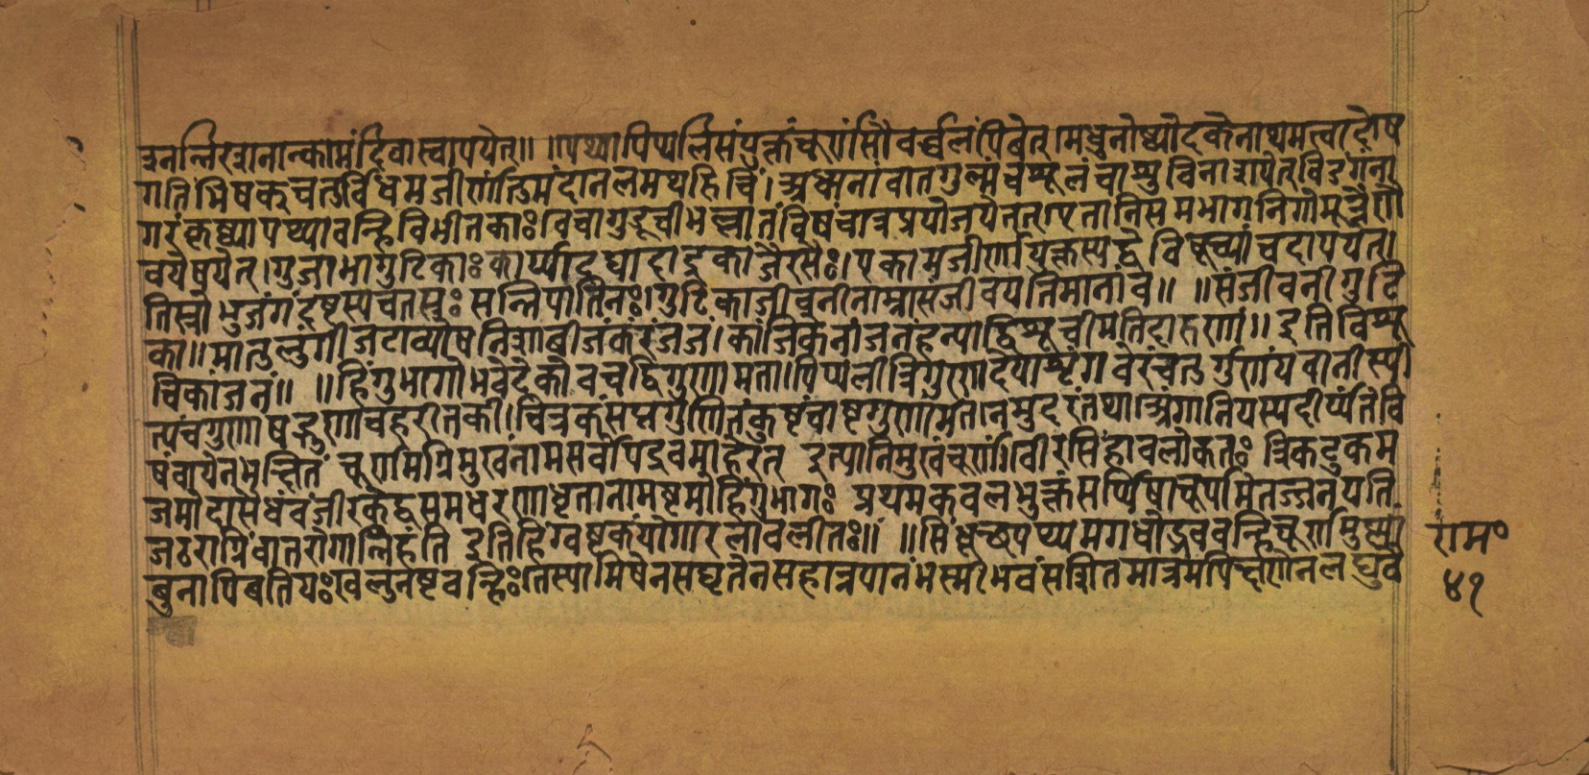 नर्त्तिरशनान्कामं दिवास्वापयेत्॥ ॥पथ्यापिप्पलिसंयुक्तं चूर्णं सौवर्च्चलं पिबेत्।मधुनोष्णोदकेनाथमत्वादोष
गतिभिषक् चतुर्विधमजीर्णंतिमंदानलमथारुचिं।अध्मानं वातगुल्मं च शूलं चाशु विनाशयेत् विडंगंना
गरं कृष्णापथ्यावन्हिविभीतकाः वचागुडूचीभल्लातं विषं चात्र प्रयोजयेत् एतानिसमभागानिगोमूत्रेणै
वपेषयेत्।गुंजाभागुटिकाः कार्य्यादद्यादार्द्रकजैरसैः।एकामजीर्णयुक्तस्य द्वे विषूच्यां च दापयेत्।
तिस्रोभुजंगदष्टस्य चतस्रः सन्निपातिनः।गुटिकाजीवनीनाम्नासंजीवयतिमानवं॥ ॥संजीवनीगुटि
का॥मातुलुंगीजटाव्योषनिशाबीजंकरंजजं।कांजिकेनांजनंहन्याद्विशूचीमतिदारुणां॥इतिविशू
चिकांजनं॥ ॥हिंगुभागोभवेदेकोवचद्विगुणामता।पिप्पलीत्रिगुणादेयाशृंगवेरंचतुर्गुणं यवानीस्या
त्पंचगुणाषड्गुणाचहरीतकी।चित्रकंसप्तगुणितंकुष्टंचाष्टगुणंमतं।
चूर्णमग्निमुखंनामसर्वोपद्रवमाहरेत् इत्यग्निमुखंचूर्णं।वीरसिंहावलोकतः त्रिकटुकम
जमोदासैंधवंजीरकेद्वेसमधरणधृतानामष्टमोहिंगुभागः प्रथमकवलभुक्तंसर्प्पिषाचूर्णमेतज्जनयति
जठराग्निंवातरोगान्निहंति इतिहिंग्वष्टकंयोगरत्नावलीतः॥ ॥सिंधूत्थपथ्यमगधोद्भववन्हिचूर्णमुष्णां
बुनापिबतियः खलुनष्टवन्हिः तस्यामिषेनसघृतेनसहान्नपानंभस्मीभवं
राम॰
४१